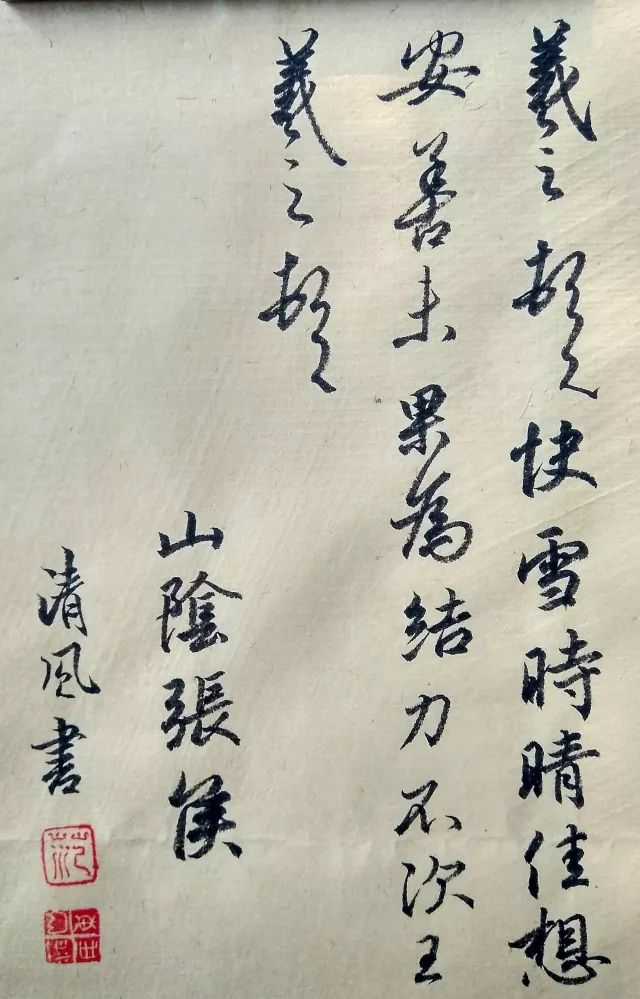 羲之頓首快雪時晴佳想
安善未果為結力不次王
羲之頓首
山陰張侯
清風書
范